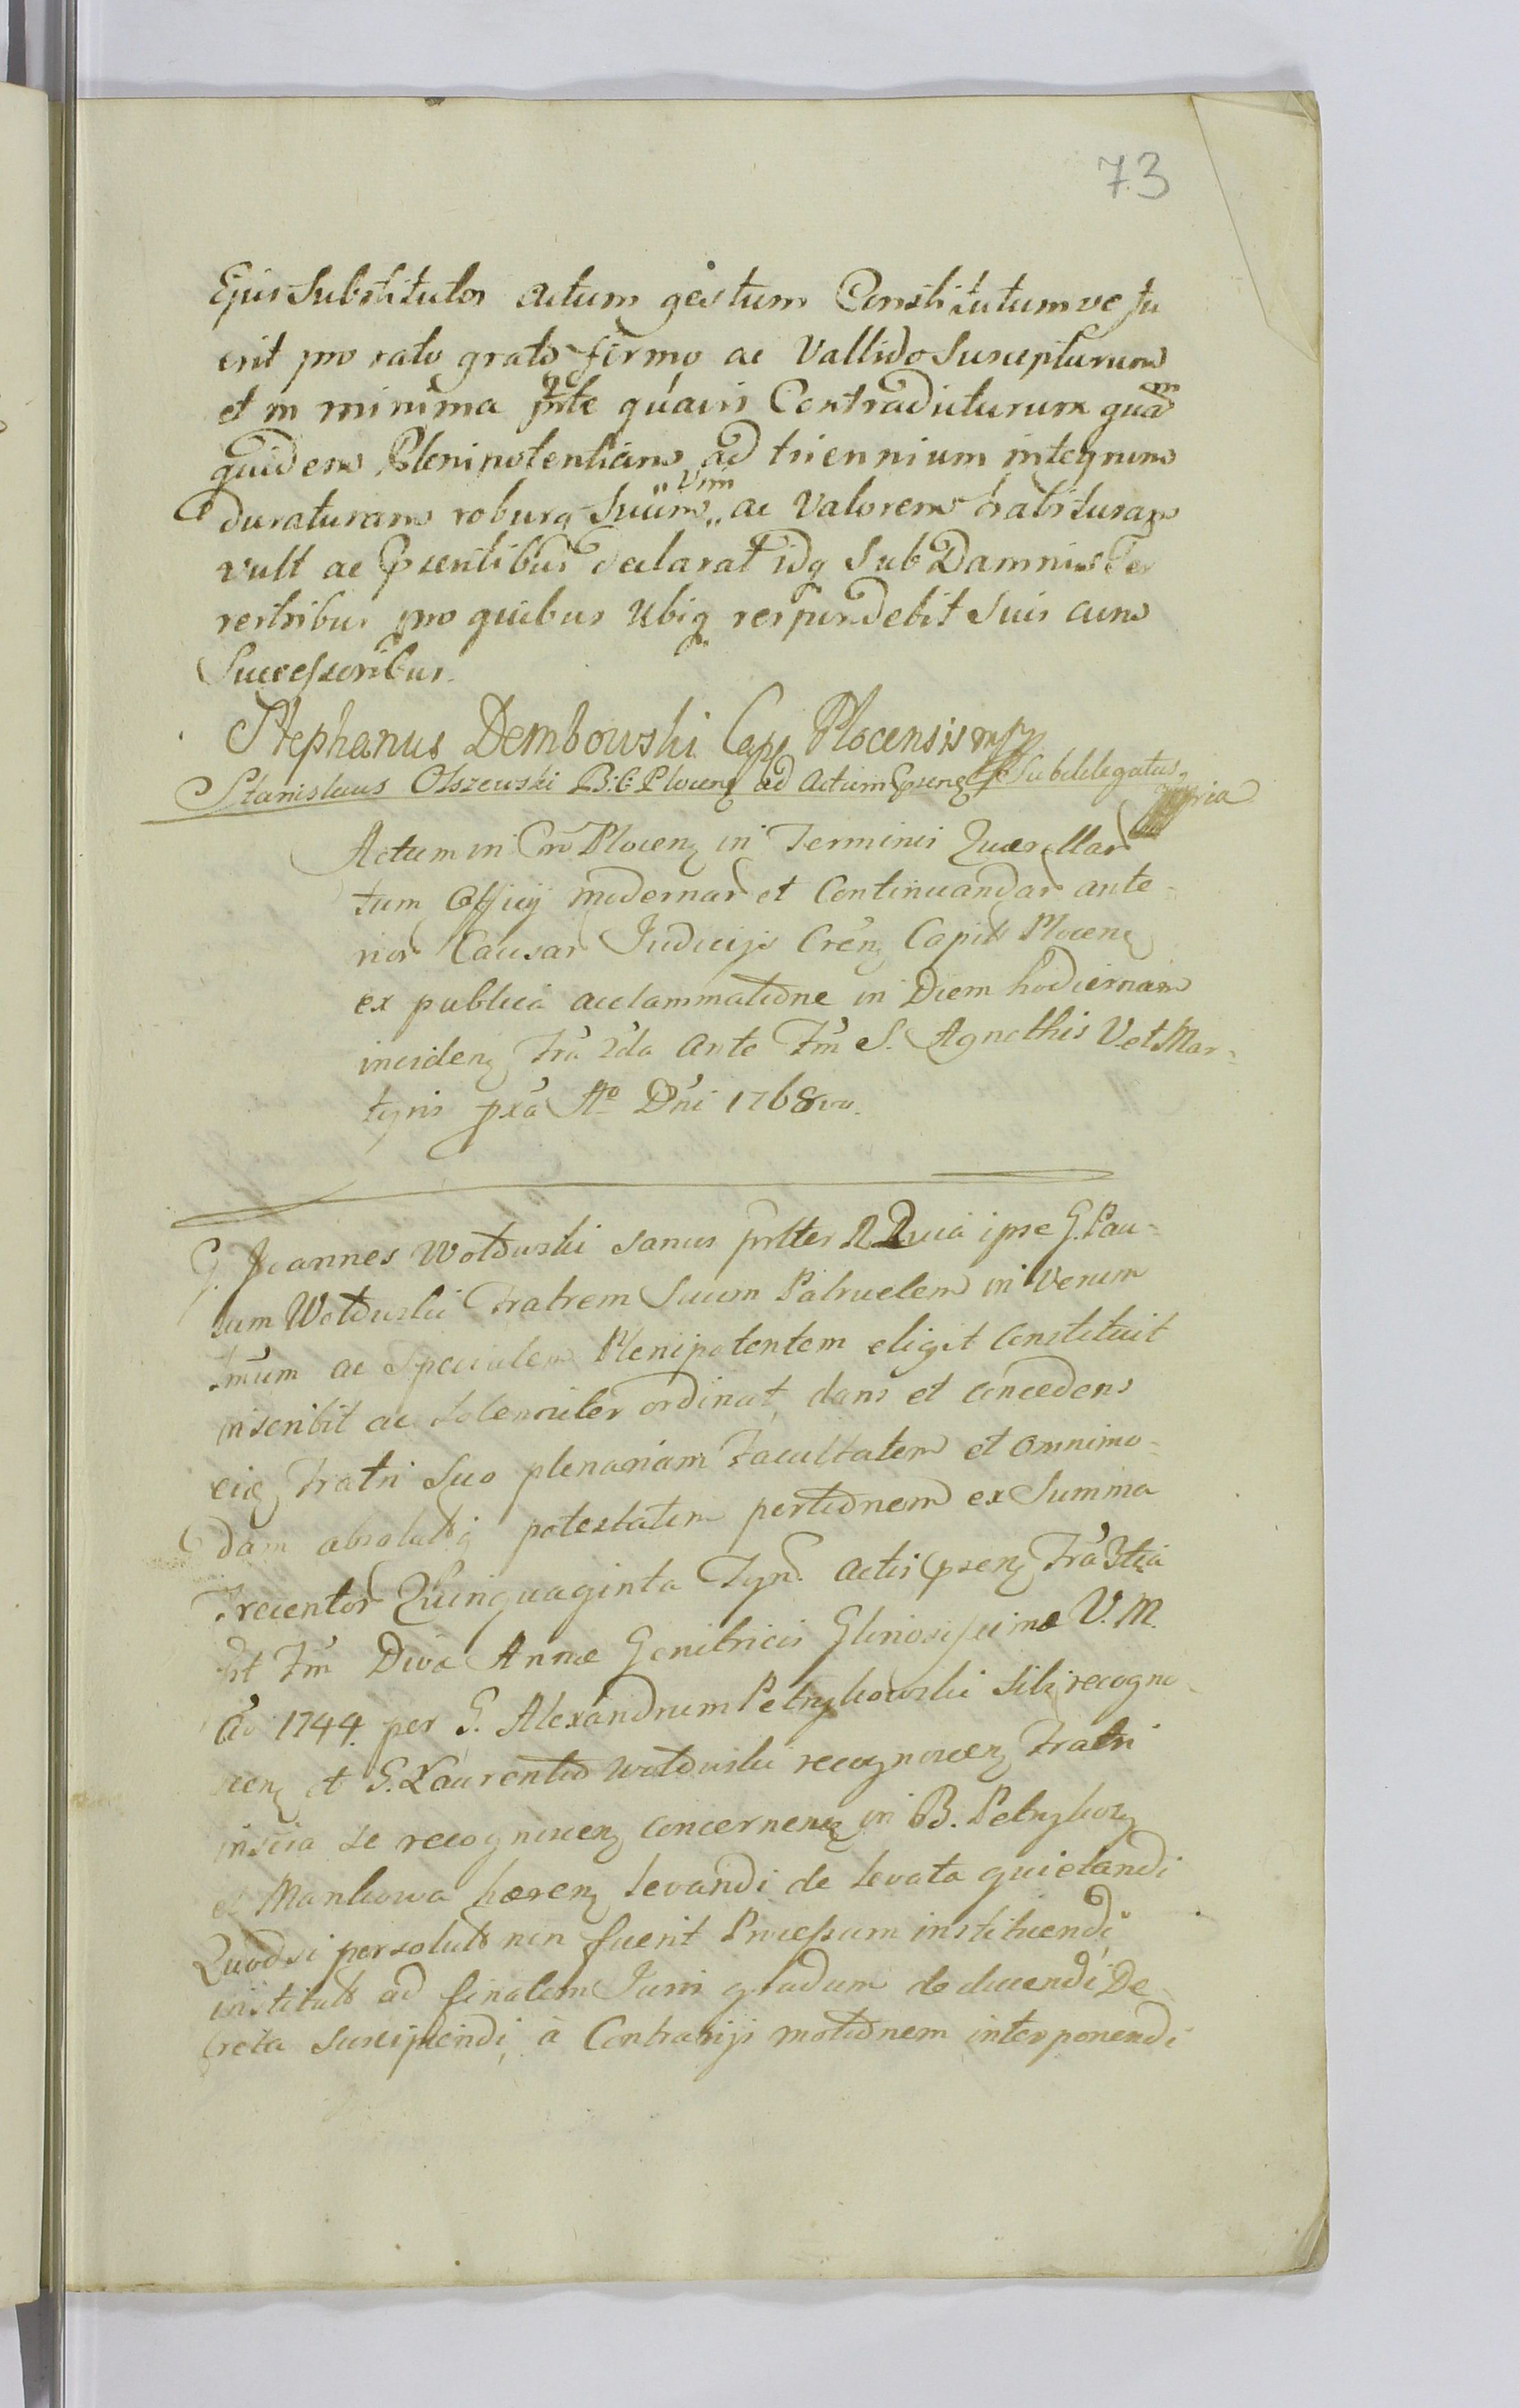 73
Ejus Substitutos actum gestum Constitutumve fu
erit pro rato grato firmo ac Vallido Suscepturum
et in minima pte quávis Contradicturum quam
quidem Plenipotentiam ad triennium integrum
duraturam roburq Suum „Vim„ ac Valorem habituram
vult ac psentibus declarat idq Sub Damnis Ter
restribus pro quibus Ubiq respondebit Suis cum
Successoribus.
Stephanus Dembowski Capp Plocensis mpp
Stanislaus Olszewski B. C. Plocenz ad Actum psenz Subdelegatus
Actum in Cro Plocenz in Terminis Quaerellar
tum Officij modernar et Continuandar ante-
rior Causar Judicijs Crenz Capitt Plocenz
ex publica acclammatione in Diem hodiernam
incidenz Fra 2da ante Fm S. Agnethis V. et Mar-
tyris pxa Ao Dni 1768vo.
G. Joannes Wotowski sanus ptter RRcia ipse G. Pau-
lum Wotowski Fratrem Suum Patruelem in Verum
Ltmum ac Specialem Plenipotentem eligit Constituit
inscribit ac Solenniter ordinat, dans et concedens
eidz Fratri Suo plenariam Facultatem et omnimo-
dam absolutq potestatem portionem ex Summa
Trecentor Quinquaginta Fynr. actis psenz Fra 3tia
pst Fm Divae Annae Genitricis Gloriosissimae V. M.
Ao 1744. per G. Alexandrum Petrykowski sibi recogno-
scenz et G. Laurentio Wotowski recognoscenz Fratri
inscia se recognoscenz concernenz in B. Petrykozy
et Mankowa haerenz levandi de levata quietandi
Quodsi persolutt non fuerit Processum instituendi
institutt ad finalem Juris gradum deducendi De-
creta suscipiendi, à Contrarijs motionem interponendi